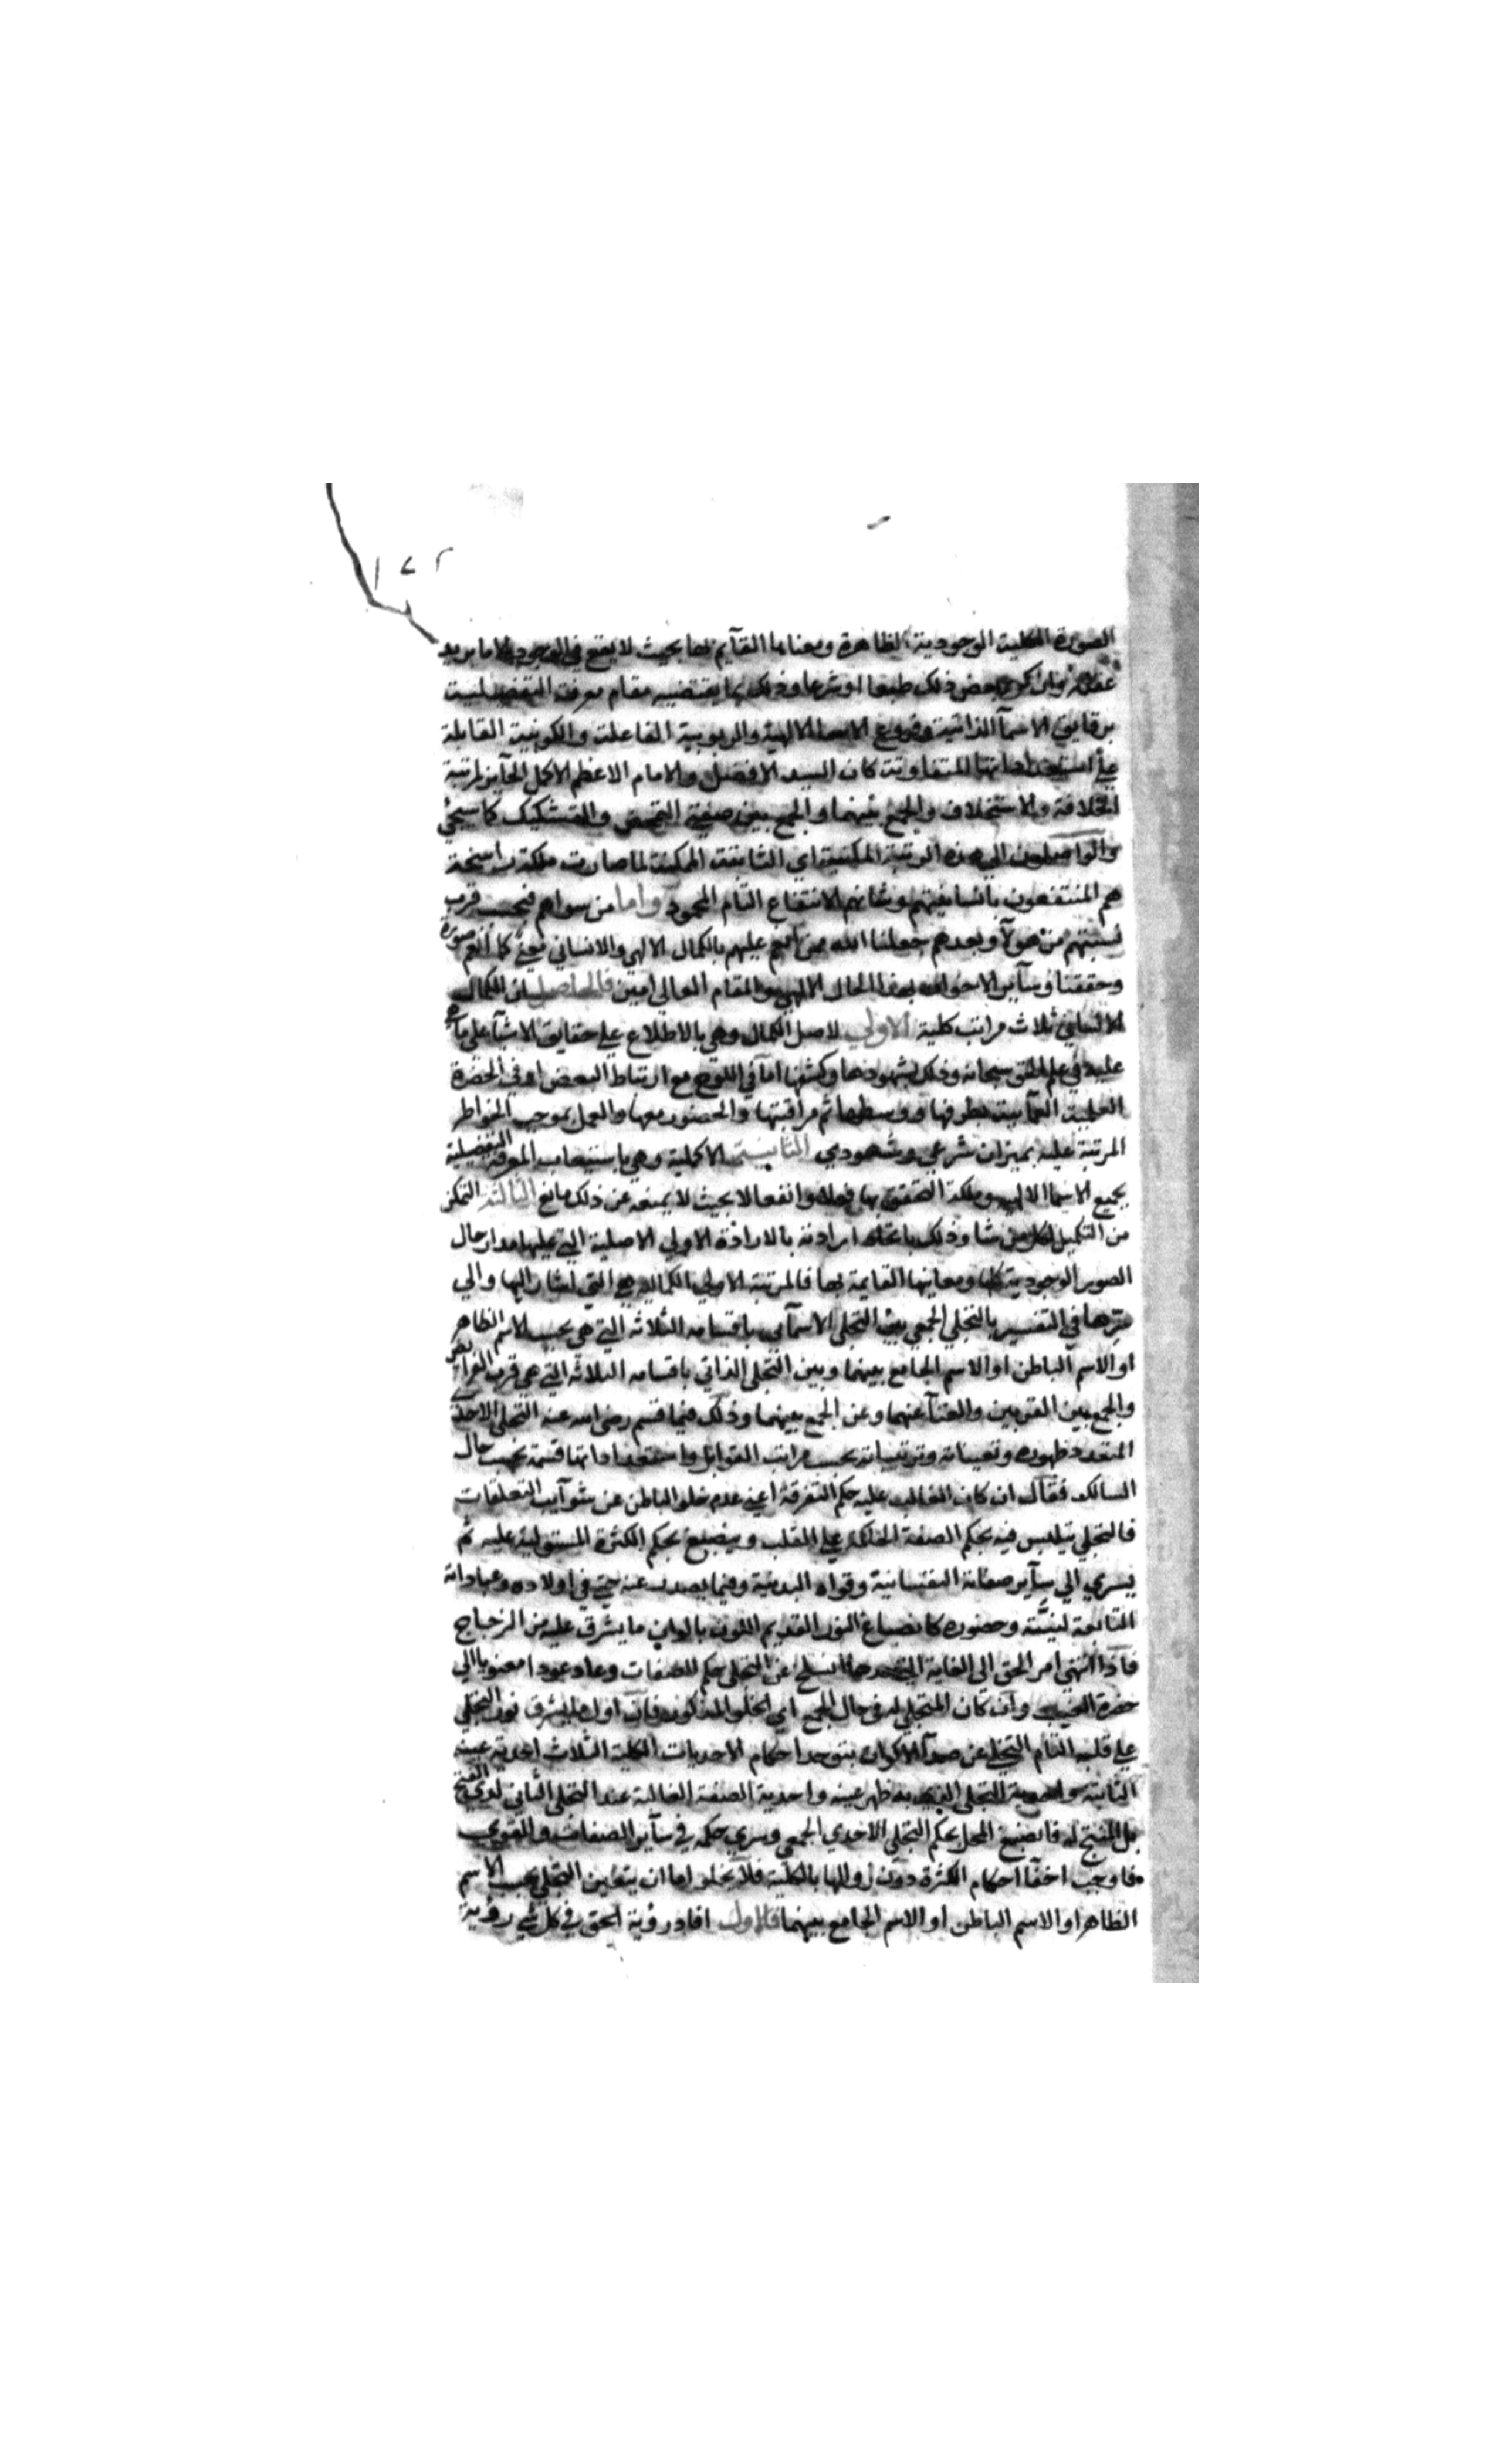 ١٤٢
الصورة الكلية الوجودية الظاهرة ومعناها القايم بها بحيث لا يقع في الوجود الا ما يريد
بعض ذلك طبعا او شرعا وذلك بما يقتضيه مقام معرفته التفصيلية
برقايق الاسمآ الذاتية وفروع الاسما الالهية والربوبية الفاعلة والكونية القابلة
علي استعداداتها المتفاوتة كان السيد الافضل والامام الاعظم الاكمل الحآيز لمرتبة
الخلافة والاستخلاف والجمع بينهما والجمع بين صفتي التمحض والتشكيك كما سيجئ
والواصلون الي هذه الرتبة المكينة اي الثابتة الممكنة لما صارت ملكة راسخة
هم المنتفعون بانسانيتهم وشانهم الانتفاع التام المحمود واما من سواهم فبحسب قرب
نسبتهم من هولآ وبعدهم جعلنا الله ممن انعم عليهم بالكمال الالهي والانساني معني كما انعم صورة
وحققنا وسآير الاخوان بهذا الحال الالهي والمقام العالي امين فالحاصل ان للكمال
الانساني ثلاث مراتب كلية الاولي لاصل الكمال وهي بالاطلاع علي حقايق الاشيآ علي ما هي
عليه في علم الحق سبحانه وذلك بشهودها وكشفها اما في اللوح مع ارتباط البعض او في الحضرة
العلمية العمآيية بطرفها ووسطها ثم مراقبتها والحضور معها والعمل بموجب الخواطر
المرتبة عليه بميزان شرعي وشهودي الثانية الاكملية وهي باستيعاب المعرفة التفصيلية
بجميع الاسما الالهية وملكة التحقق بها فعلا وانفعالا بحيث لا يمنعه عن ذلك مانع الثالثة التمكن
من التكميل لكل من شا وذلك باتحاد ارادته بالارادة الاولي الاصلية التي عليها مدار حال
الصور الوجودية كلها ومعانيها القايمة بها فالمرتبة الاولي الكمالية هي التي اشار اليها والي
سرها في التفسير بالتجلي الجمعي بين التجلي الاسمآيي باقسامه الثلاثة التي هي بحسب الاسم الظاهر
او الاسم الباطن او الاسم الجامع بينهما وبين التجلي الذاتي باقسامه الثلاثة التي هي قرب الفرايض
والجمع بين القربين والغنآ عنهما وعن الجمع بينهما وذلك فيما قسم رضي الله عنه التجلي الاحدي
المتعدد ظهوره وتعيناته وترتيباته بحسب مراتب القوابل واستعداداتها قسمة بحسب حال
السالك فقال ان كان الغالب عليه حكم التفرقة اعني عدم خلو الباطن عن شوآيب التعلقات
فالتجلي يتلبس فيه بحكم الصفة الحاكمة علي القلب وينصبغ بحكم الكثرة المستولية عليه ثم
يسري الي سآير صفاته النفسانية وقواه البدنية وفيما يصدر عنه حتي في اولاده وعباداته
التابعة لنيَّته وحضوره كانصباغ النور العديم اللون بالوان ما يشرق عليه من الزجاج
فاذا انتهي امر الحق الي الغاية التي حدها انسلخ عن التجلي حكم الصفات وعاد عودا معنويا الي
حضرة الغيب وان كان المتجلي له في حال الجمع اي الخلو المذكور فان اول ما يشرق نور التجلي
علي قلبه التام التجلي عن صدآ الاكوان بتوحد احكام الاحديات الكلية الثلاث احدية عينه
الثابتة واحدية التجلي الذي به ظهر عينه واحدية الصفة الغالبة عند التجلي الثاني لدي الفتح
بل المنتج له فانصبغ المحل بحكم التجلي الاحدي الجمعي وسري حكمه في سآير الصفات والقوي
فاوجب اخفآ احكام الكثرة دون زوالها بالكلية فلا يخلو اما ان يتعين التجلي بحسب الاسم
الظاهر او الاسم الباطن او الاسم الجامع بينهما فالاول افاد رؤية الحق في كل شي رؤية